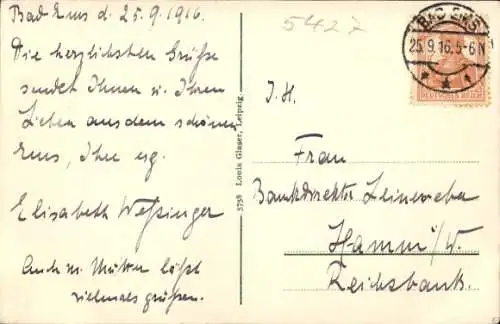 Bad Ems d. 25.9.1916.
Die herzlichsten Grüße
sendet Ihnen u. Ihren
Lieben aus dem schönen
Ems, Ihre erg.
Elisabeth Weßinger
Auch m. Mutter läßt
vielmals grüßen.
5758 Louis Glaser, Leipzig.
5427
BAD EMS
25.9.16.5-6N
DEUTSCHES REICH
I. H.
Frau
Bankdirektor Leineweber
Hamm i/W.
Reichsbank.